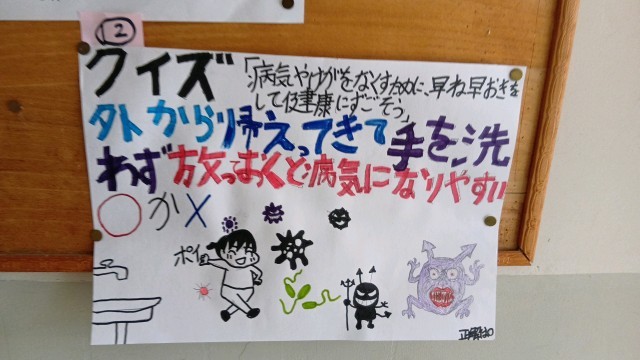 2
クイズ
「病気やけがをなくすために、早ね早おきを
して健康にすごそう」
外から帰えってきて手を洗
わず放っておくと病気になりやすい
○か×
ポイ
正解は○